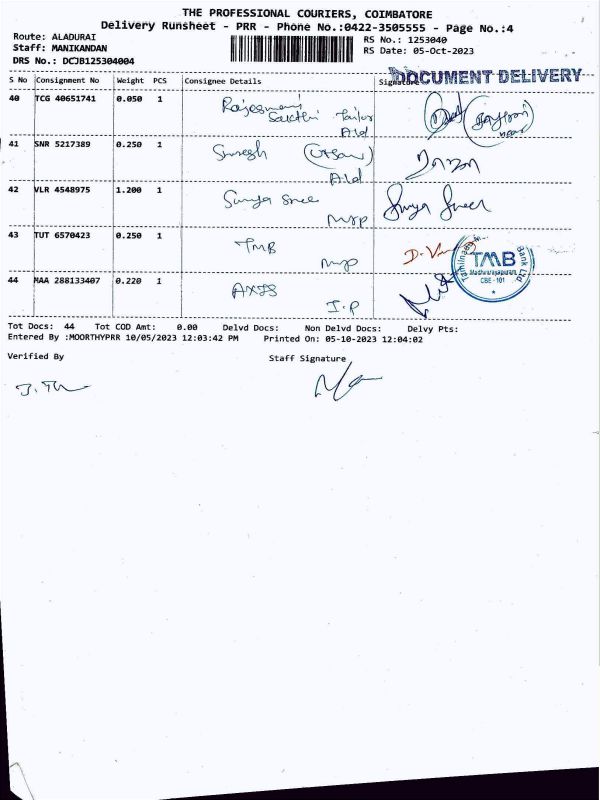 THE PROFESSIONAL COURIERS, COIMBATORE
Delivery Runsheet - PRR - Phone No.:0422-3505555 - Page No.:4
Route: ALADURAI
Staff: MANIKANDAN
DRS No.: DCJB125304004
RS No.: 1253040
RS Date: 05-Oct-2023
DOCUMENT DELIVERY
S No Consignment No Weight PCS Consignee Details Signature
40 TCG 40651741 0.050 1 Rajeswari
Sakthi Tailor
Ald
41 SNR 5217389 0.250 1 Suresh
Ald
42 VLR 4548975 1.200 1 Surya Sree Surya Sree
43 TUT 6570423 0.250 1 TMB D.V
Tamilnad
TMB
Bank Ltd
CBE - 101
44 MAA 288133407 0.220 1 AXIS
I.P
Tot Docs: 44 Tot COD Amt: 0.00 Delvd Docs: Non Delvd Docs: Delvy Pts:
Entered By :MOORTHYPRR 10/05/2023 12:03:42 PM Printed On: 05-10-2023 12:04:02
Verified By Staff Signature